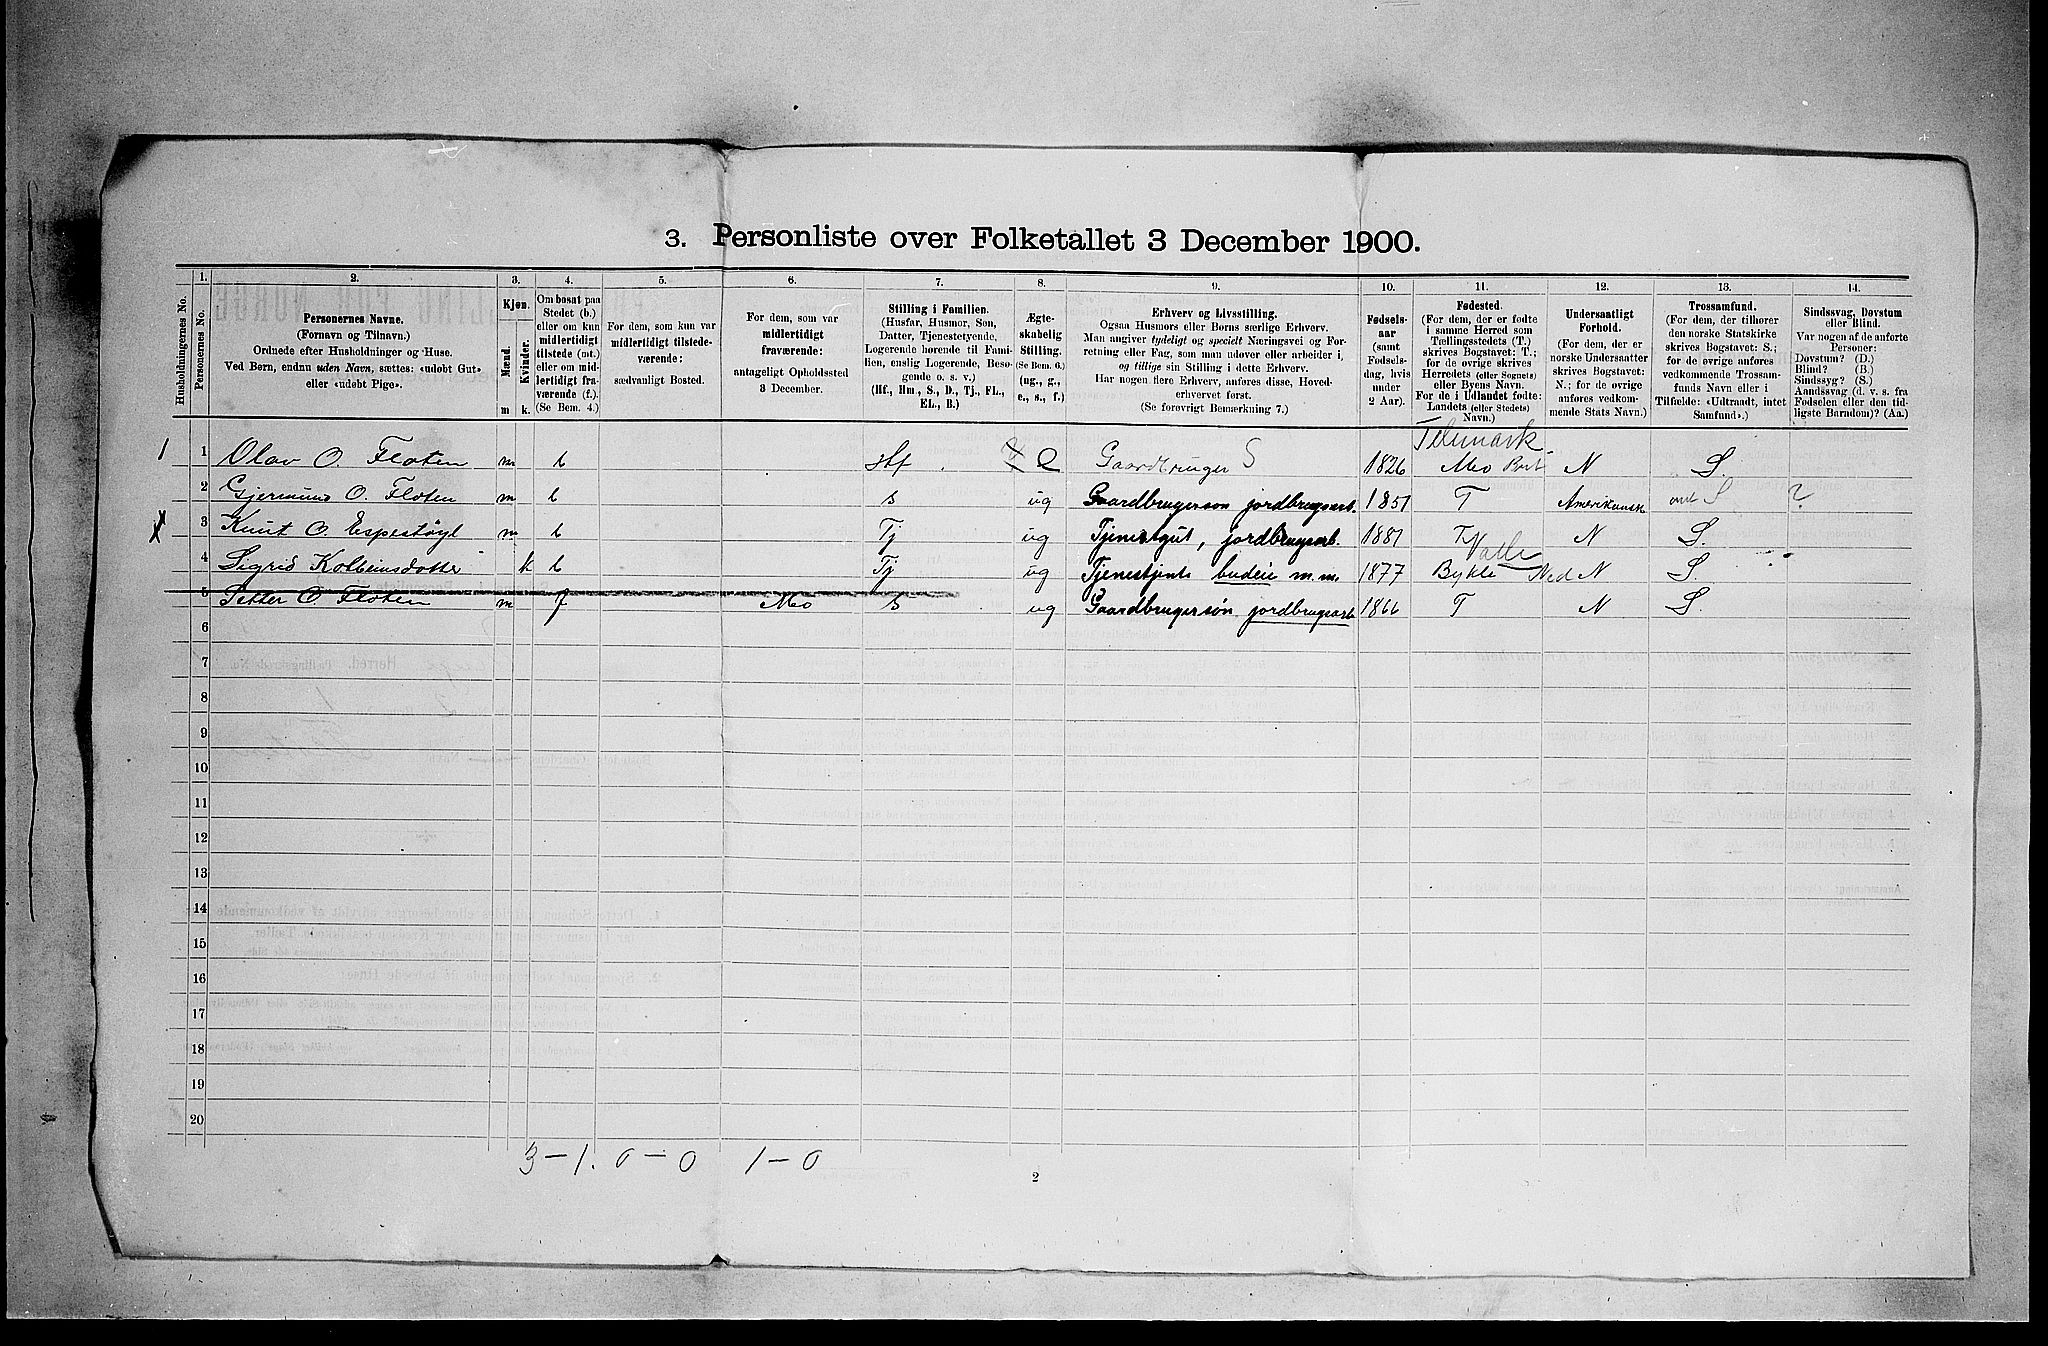 3. Personliste over Folketallet 3 December 1900.
1. 2. 3. 4. 5. 6. 7. 8. 9. 10. 11. 12. 13. 14.
Husholdningernes No.
Personernes No.
Personernes Navne.
(Fornavn og Tilnavn.)
Ordnede efter Husholdninger og Huse.
Ved Børn, endnu uden Navn, sættes: «udøbt Gut»
eller «udøbt Pige».
Kjøn.
Mænd.
Kvinder.
m k.
Om bosat paa
Stedet (b.)
eller om kun
midlertidigt
tilstede (mt.)
eller om mid-
lertidigt fra-
værende (f.).
(Se Bem. 4.)
For dem, som kun var
midlertidigt tilstede-
værende:
sædvanligt Bosted.
For dem, som var
midlertidigt
fraværende:
antageligt Opholdssted
3 December.
Stilling i Familien.
(Husfar, Husmor, Søn,
Datter, Tjenestetyende,
Logerende hørende til Fami-
lien, enslig Logerende, Besø-
gende o. s. v.)
(Hf., Hm., S., D., Tj., FL.,
EL., B.)
Ægte-
skabelig
Stilling.
(Se Bem. 6.)
(ug., g.,
e., s., f.)
Erhverv og Livsstilling.
Ogsaa Husmors eller Børns særlige Erhverv.
Man angiver tydeligt og specielt Næringsvei og For-
retning eller Fag, som man udøver eller arbeider i,
og tillige sin Stilling i dette Erhverv.
Har nogen flere Erhverv, anføres disse, Hoved-
erhvervet først.
(Se forøvrigt Bemærkning 7.)
Fødsels-
aar
(samt
Fødsels-
dag, hvis
under
2 Aar).
Fødested.
(For dem, der er fødte
i samme Herred som
Tællingsstedets (T.)
skrives Bogstavet: T.;
for de øvrige skrives
Herredets (eller Sognets)
eller Byens Navn.
For de i Udlandet fødte:
Landets (eller Stedets)
Navn.)
Undersaatligt
Forhold.
(For dem, der er
norske Undersaatter
skrives Bogstavet:
N.; for de øvrige
anføres vedkom-
mende Stats Navn.)
Trossamfund.
(For dem, der tilhører
den norske Statskirke
skrives Bogstavet: S.;
for de øvrige anføres
vedkommende Trossam-
funds Navn eller i
Tilfælde: «Udtraadt, intet
Samfund».)
Sindssvag, Døvstum
eller Blind.
Var nogen af de anførte
Personer:
Døvstum? (D.)
Blind? (B.)
Sindssyg? (S.)
Aandssvag (d. v. s. fra
Fødselen eller den tid-
ligste Barndom)? (Aa.)
Telemark
1 1 Olav O. Floten m b Gaardbruger S 1826 Mo N S.
2 Gjermund O. Floten m b s ug Gaardbrugerson jordbrugsarb. 1851 T Amerikansk S ?
3 Knut O. Espestøyl m b Tj ug Tjenestgut, jordbrugsarb. 1881 N S.
Valle
4 Sigrid Kolbeinsdotter k b Tj ug Tjenestjente budeie m.m. 1877 Bykle Ned N S.
5 Petter O. Floten m f Mo s ug Gaardbrugersøn jordbrugsarb 1866 T N S.
6
7
8
9
10
11
12
13
14
15
16
17
18
19
20
3 – 1. 0 – 0 1 – 0
2